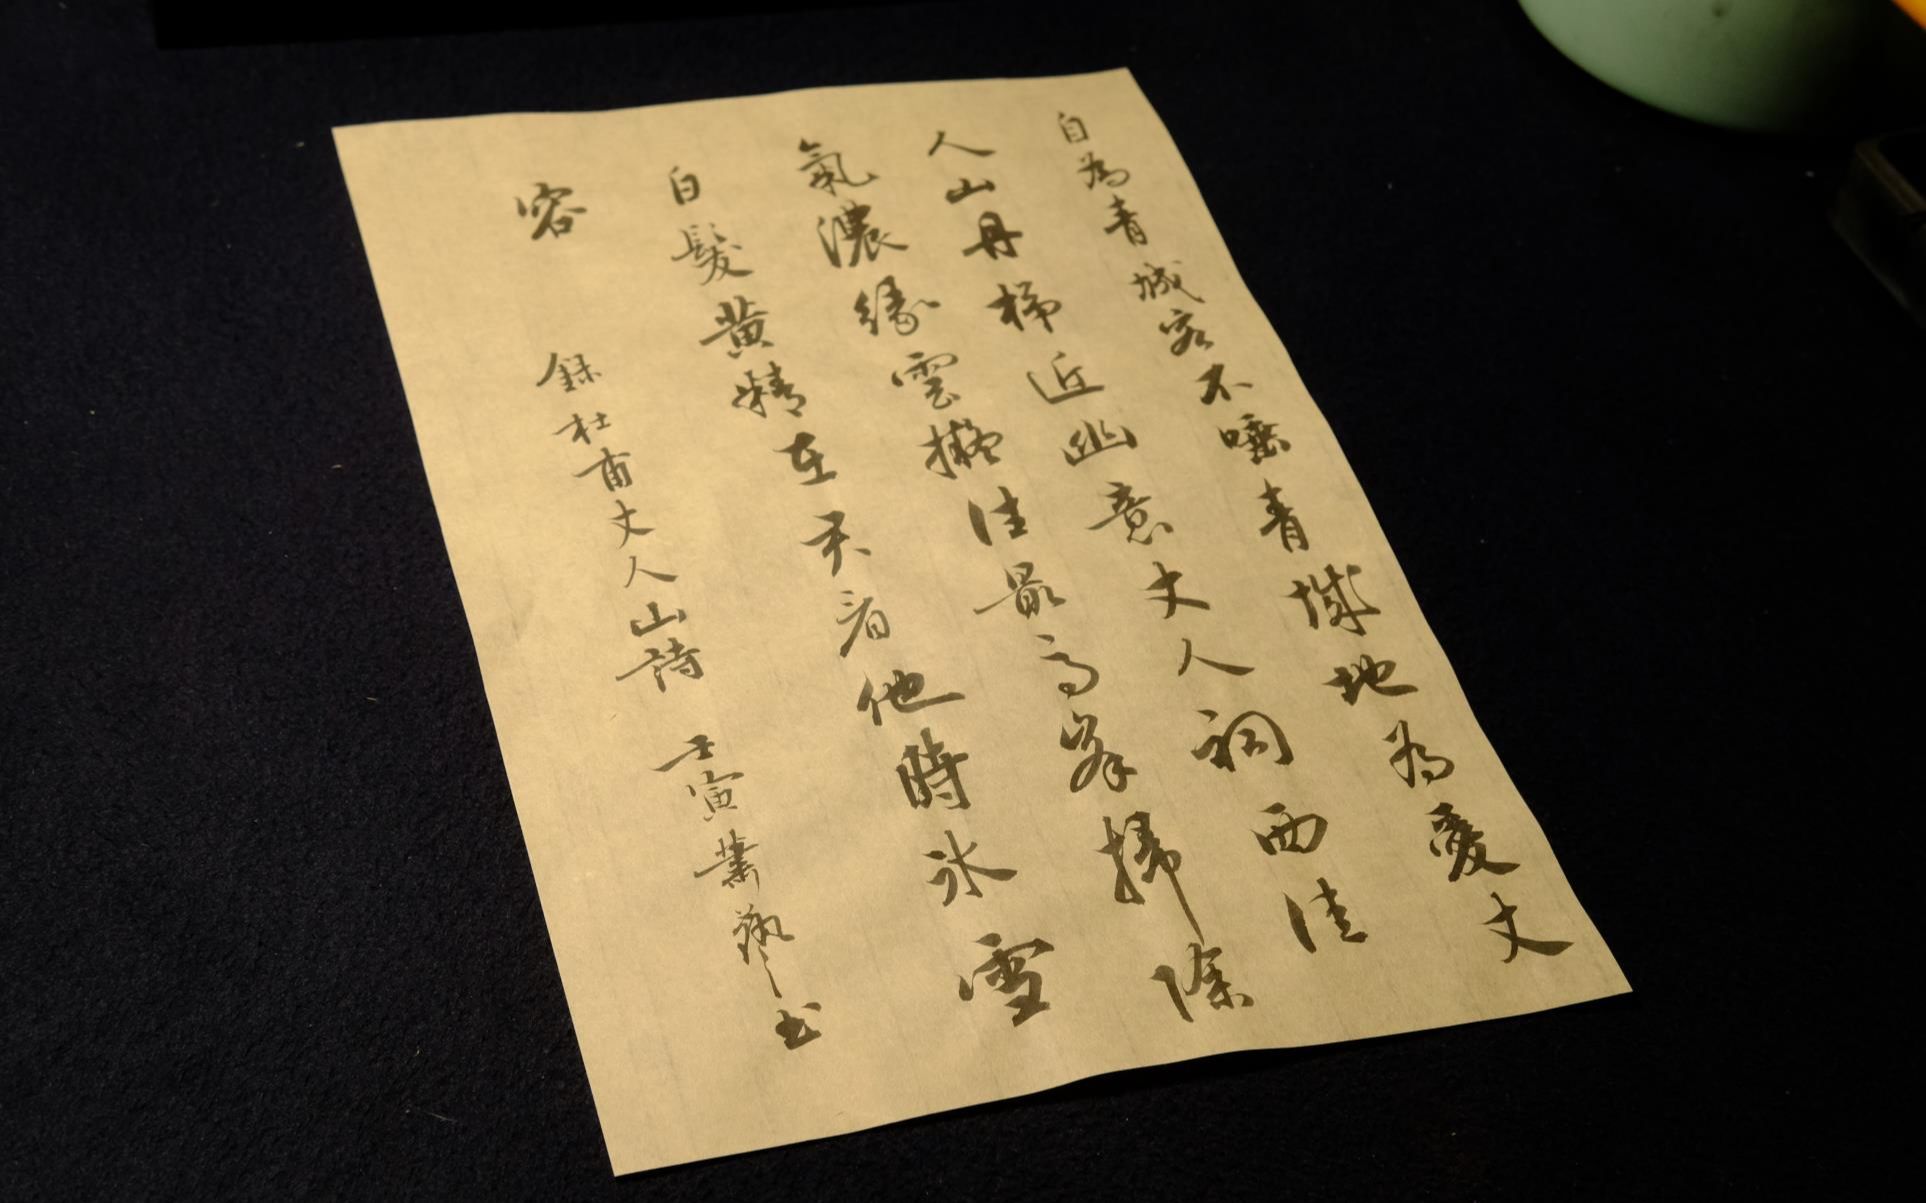 自為青城客不唾青城地為愛丈
人山丹梯近幽意丈人祠西佳
氣濃緣雲擬住最高峯掃除
白髮黃精在君看他時冰雪
容
錄杜甫丈人山詩 壬寅 書